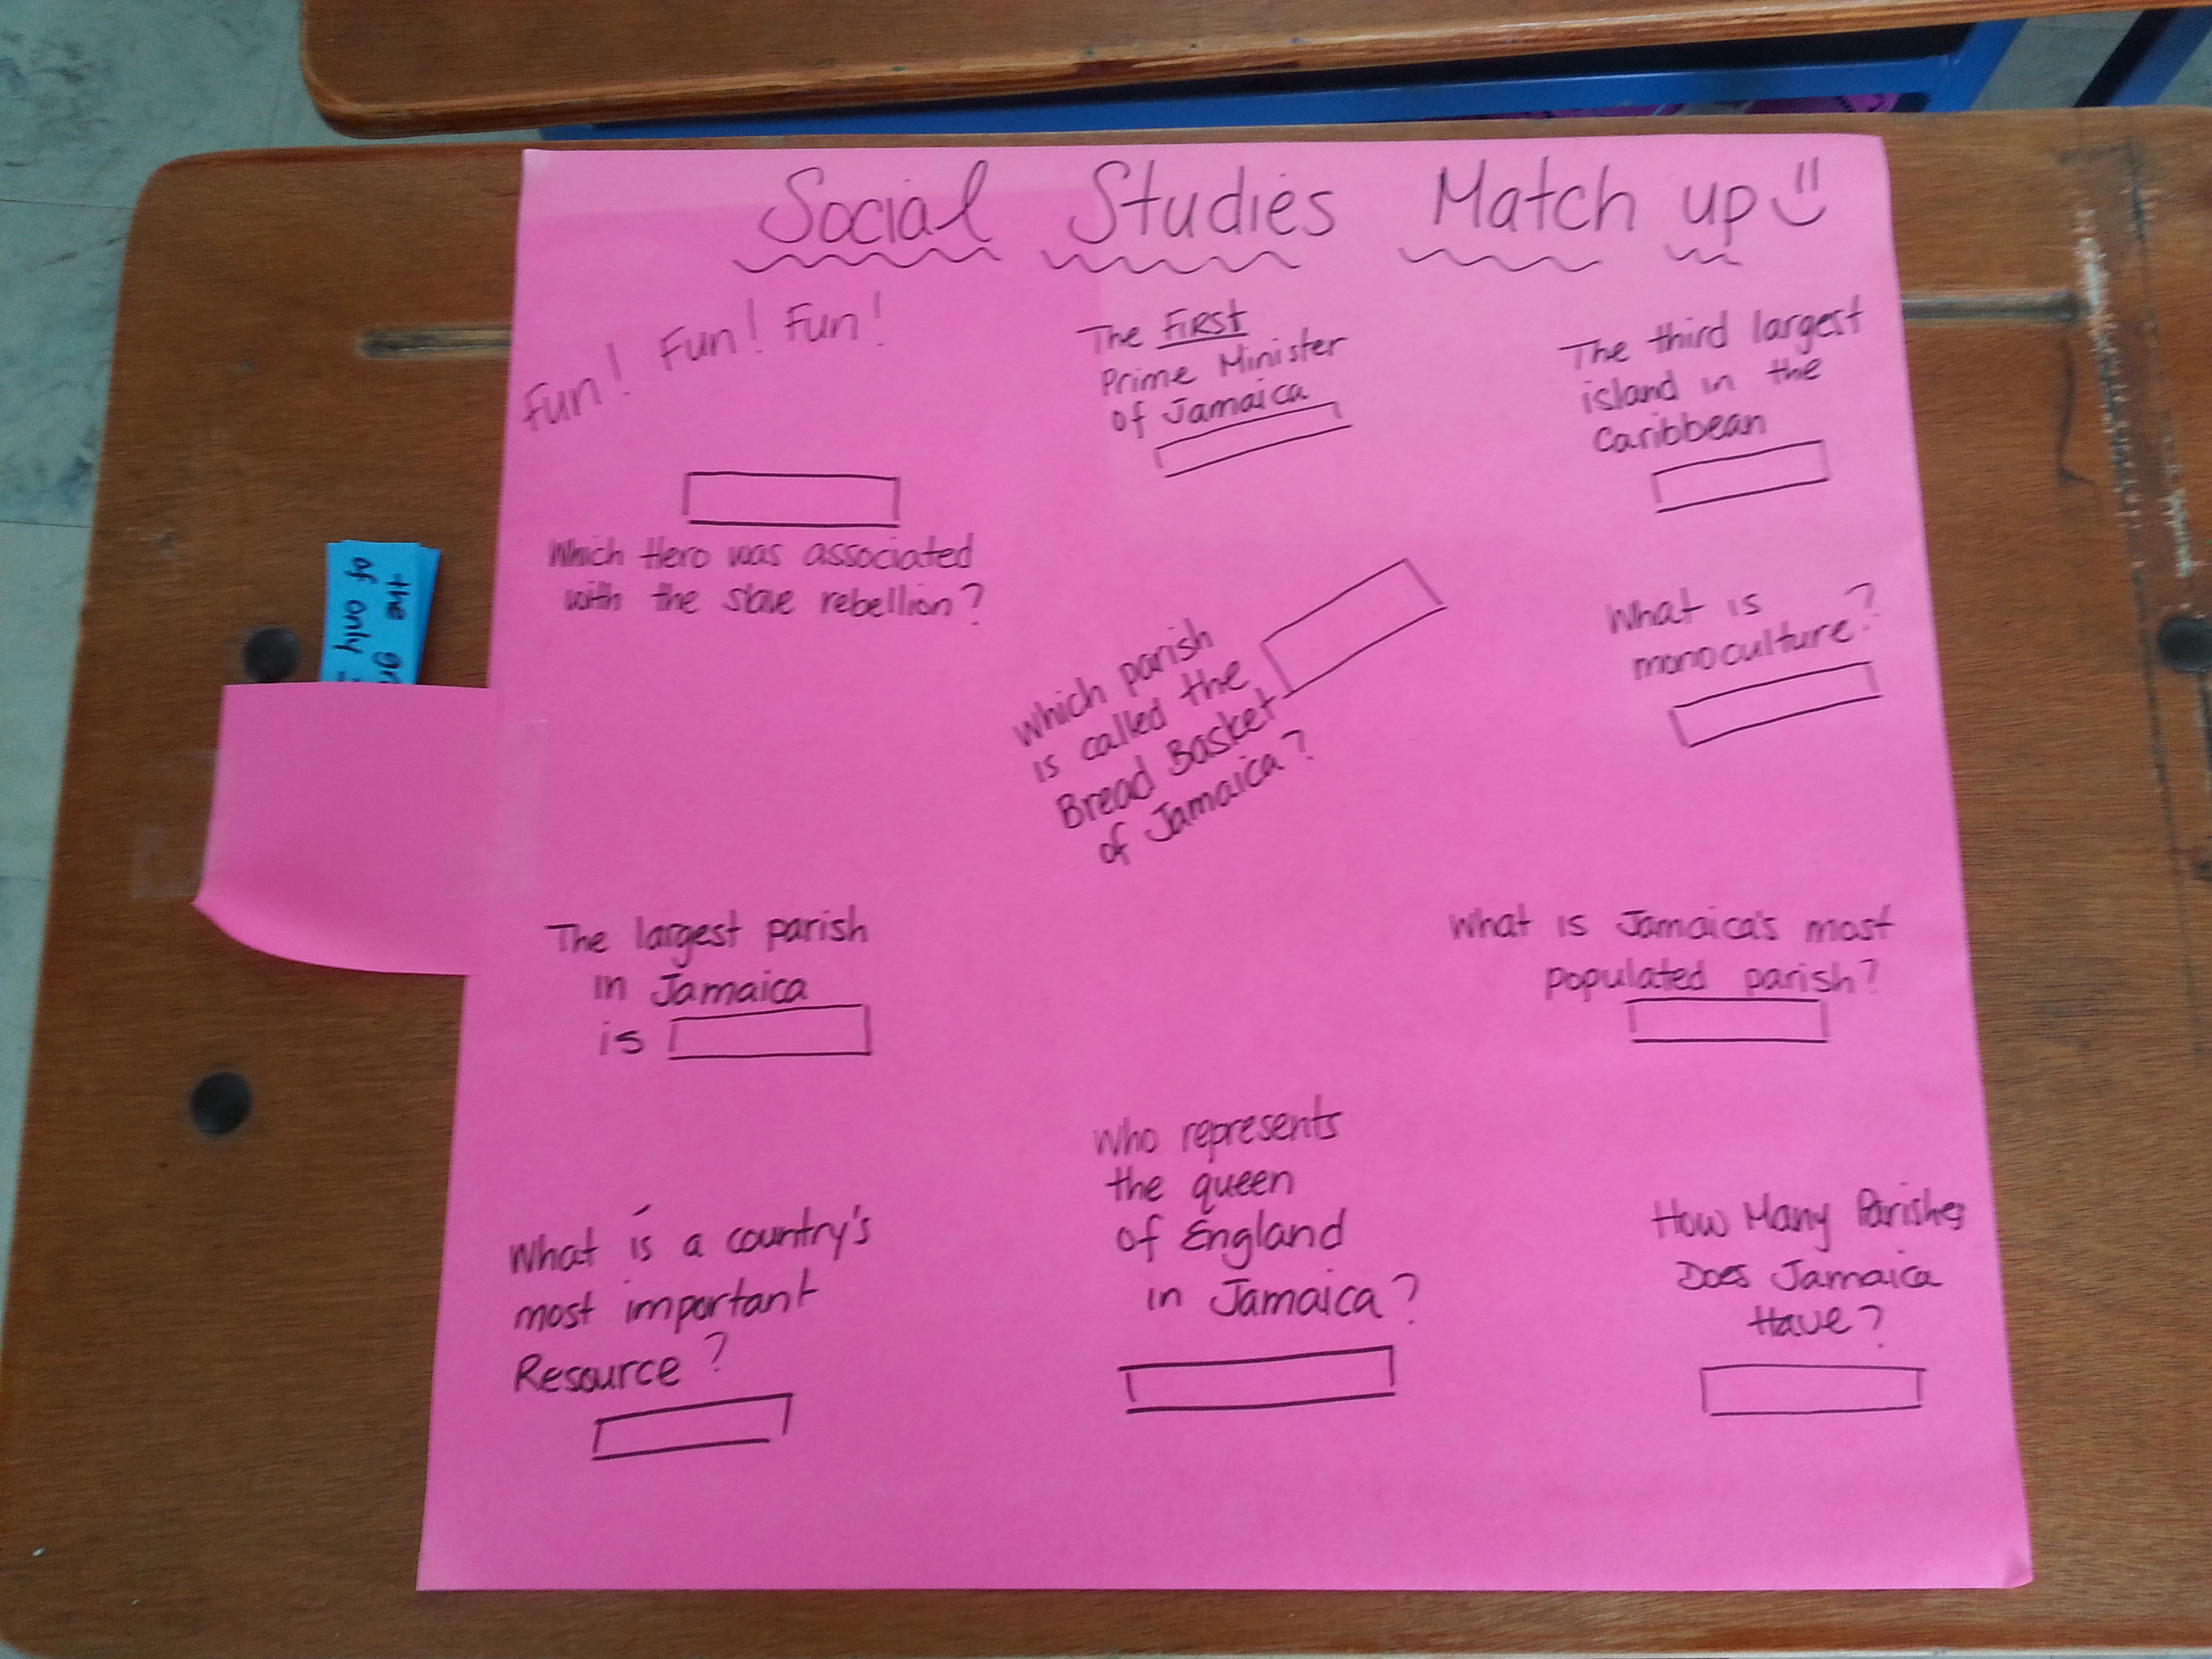 Social Studies Match up
Fun! Fun! Fun!
The FIRST
Prime Minister
of Jamaica
The third largest
island in the
Caribbean
Which Hero was associated
with the slave rebellion?
Which parish
is called the
Bread Basket
of Jamaica?
What is
monoculture?
The largest parish
in Jamaica
is
What is Jamaica's most
populated parish?
What is a country's
most important
Resource?
Who represents
the queen
of England
in Jamaica?
How Many Parishes
Does Jamaica
Have?
the
of only